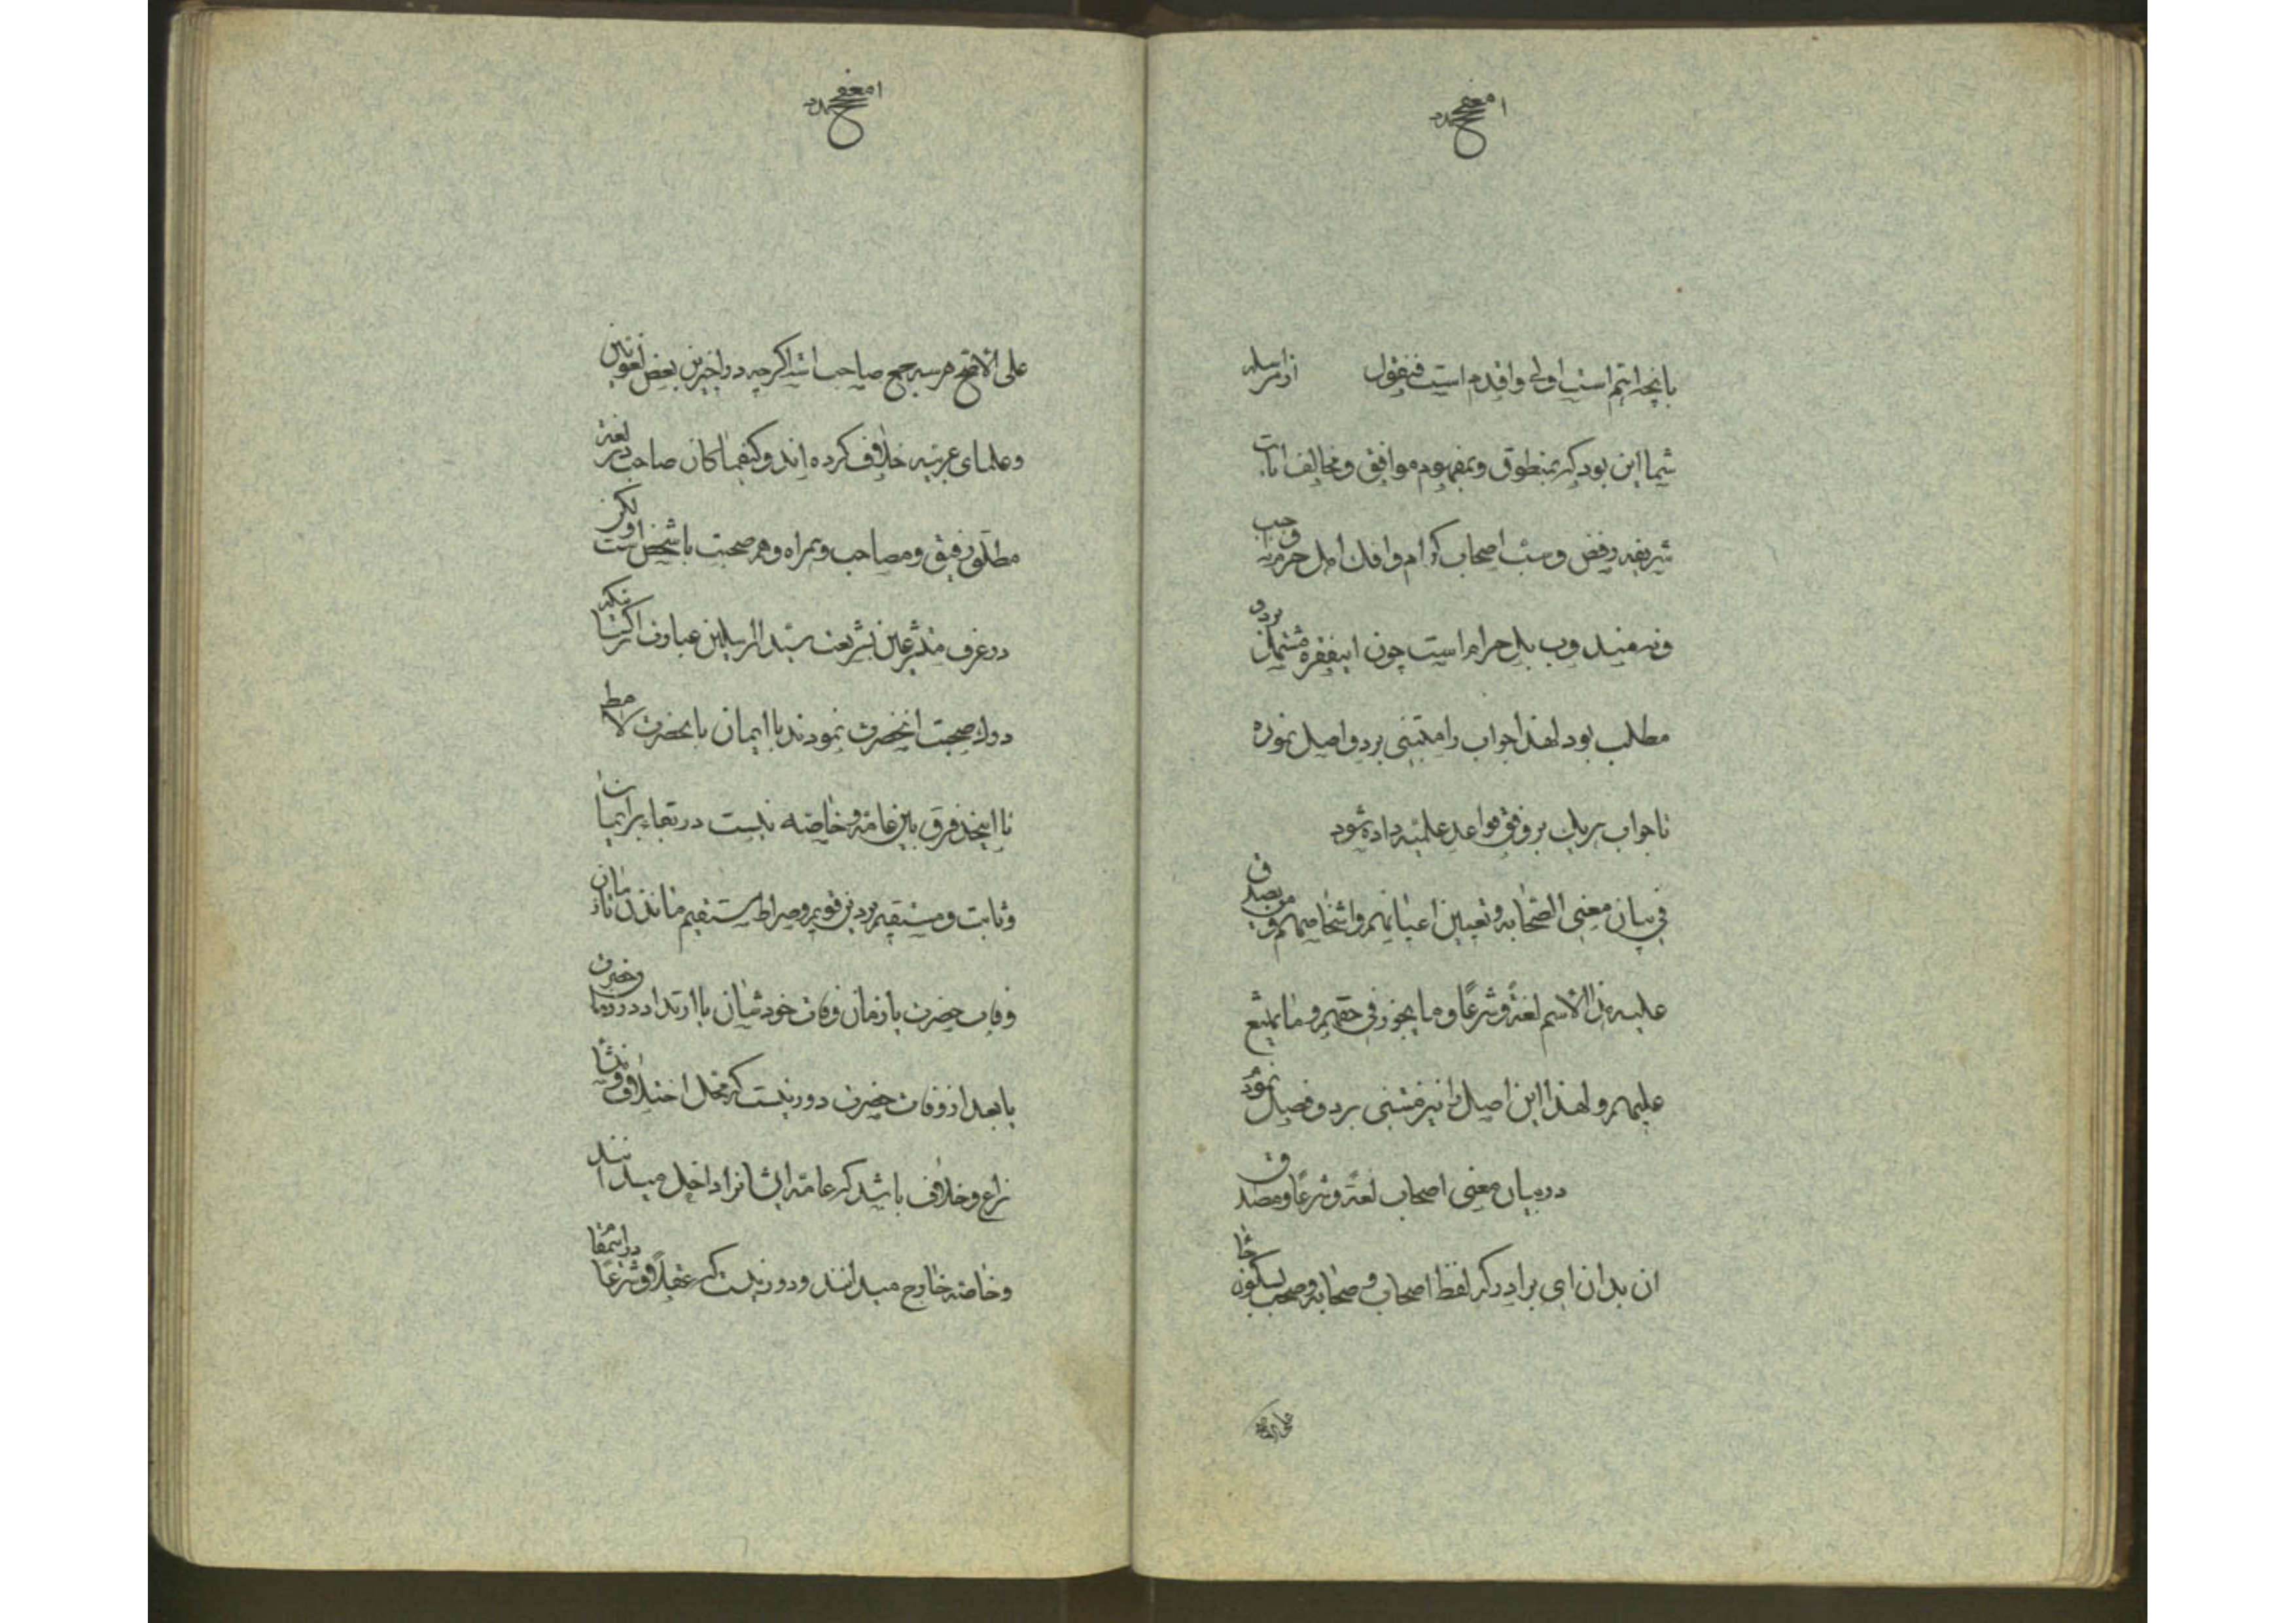 بانچه اهم است اولی واقدم است فنقول از امر سلیه
شما این بود که بمنطوق وبمفهوم موافق ومخالف ایات
شریفه رفض وسب اصحاب کرام وافک اهل حرم نه واجب
ونه مندوب بل حرام است چون اینفقره مشتمل بر دو
مطلب بود لهذا جواب را مبتنی بر دو اصل نموده
تا جواب هریک بر وفق قواعد علمیه داده شود
فی بیان معنی الصحابه وتعیین اعیانهم واشخاصهم ومن یصدق
علیه هذا الاسم لغة وشرعًا وما یجوز فی حقهم وما یمتنع
علیهم ولهذا این اصل را نیز مبتنی بر دو فصل نمود
در بیان معنی اصحاب لغة وشرعًا ومصداق
ان بدان ای برادر که لفظ اصحاب و صحابه وصحب بسکون حا
علی الاصح
علی الاصح هر سه جمع صاحب است اگرچه در اخیرین بعض لغویین
وعلمای عربیه خلاف کرده اند وکیفما کان صاحب در لغة
مطلق رفیق ومصاحب وهمراه وهم صحبت با شخص است ولکن
در عرف متشرعین بشریعت سید المرسلین عبارت از کسانیکه
درک صحبت انحضرت نمودند با ایمان بانحضرت لا مط
تا اینجا فرق بین عامه وخاصه نیست در بقاء بر ایمان
وثابت ومستقیم بر دین قویم وصراط مستقیم ماندن تا زمان
وفات حضرت یا زمان وفات خودشان با ارتداد در زمان حضرت
یا بعد از وفات حضرت دور نیست که محل اختلاف ومنشا
نزاع وخلاف باشد که عامه ایشانرا داخل میدانند
وخاصه خارج میدانند ودور نیست که عقلًا وشرعًا در اینمقا